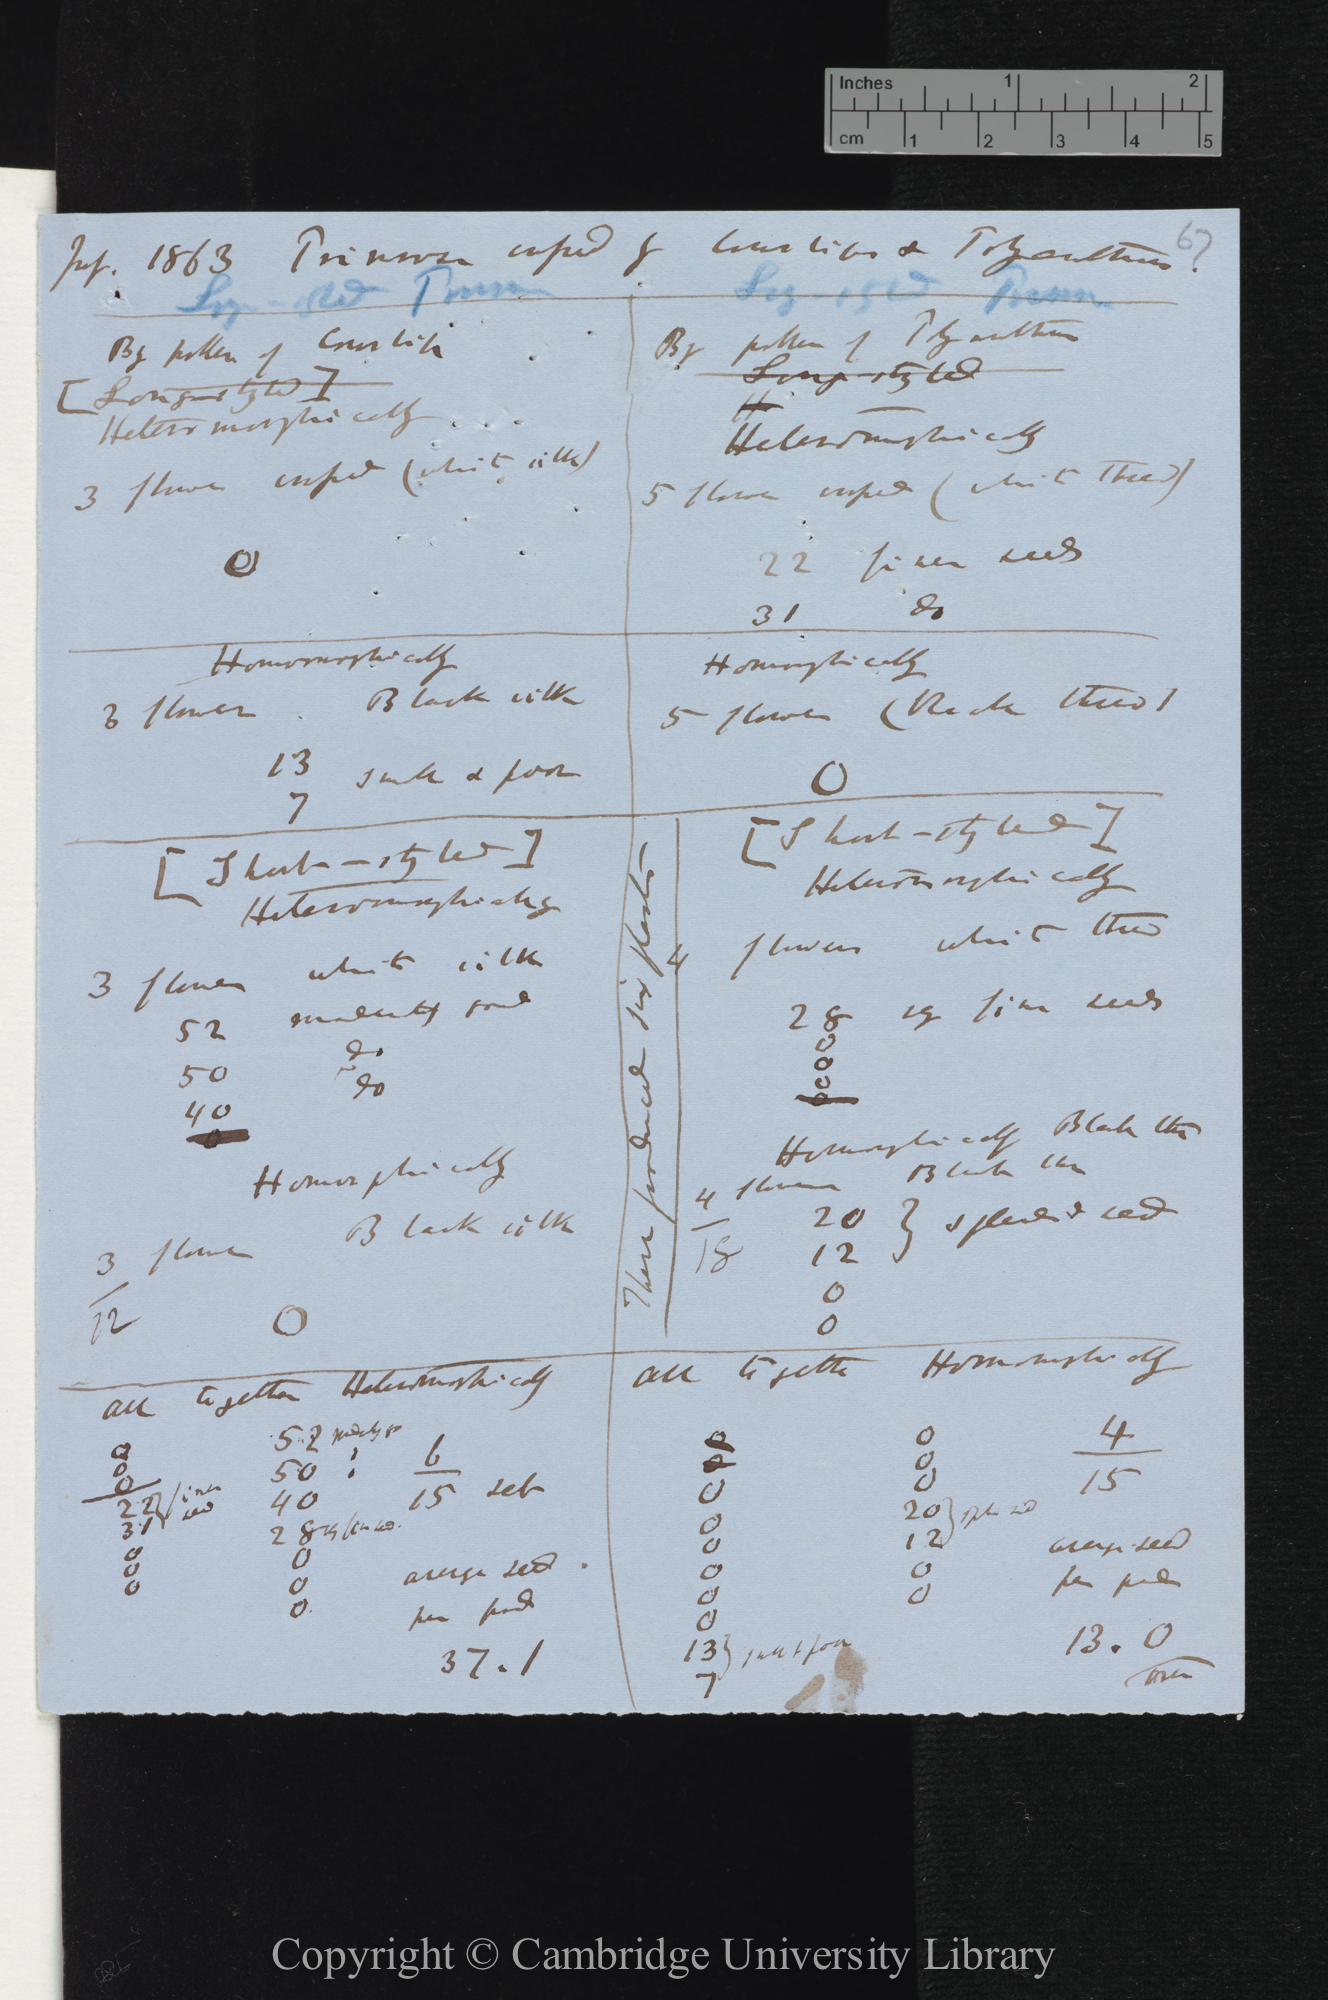 Inches 1 2
cm 1 2 3 4 5
67
1863 Primrose crossed by Cowslips & Polyanthus.
Long-styled Primrose
Long-styled Primrose
By pollen of Cowslip
[Long-styled]
Heteromorphically
3 flowers crossed (white silk)
0
By pollen of Polyanthus
Long-styled
H
Heteromorphically
5 flowers crossed (white thread)
22 fine seeds
31 do
Homomorphically
3 flowers Black silk
13 small & poor
7
Homorphically
5 flowers (Black thread)
0
[Short-styled]
Heteromorphically
3 flowers white silk
52 moderately good
50 do
40 do
0
Homorphically
3 flowers Black silk
12
0
These produced six plants
[Short-styled]
Heteromorphically
4 flowers white thread
28 fine seeds
0
0
0
0
Homorphically Black
4 flowers Black
18
20 } splendid seed
12
0
0
All together Heteromorphically
0
0
0
22 } fine seed
31
0
0
0
52
50
40
28
0
0
0
6
15 set
average seed
per pod
37.1
All together Homomorphically
0
0
0
0
0
0
0
0
13 } small & poor
7
0
0
0
20 }
12
0
0
4
15
average seed
per pod
13.0
over
Copyright © Cambridge University Library